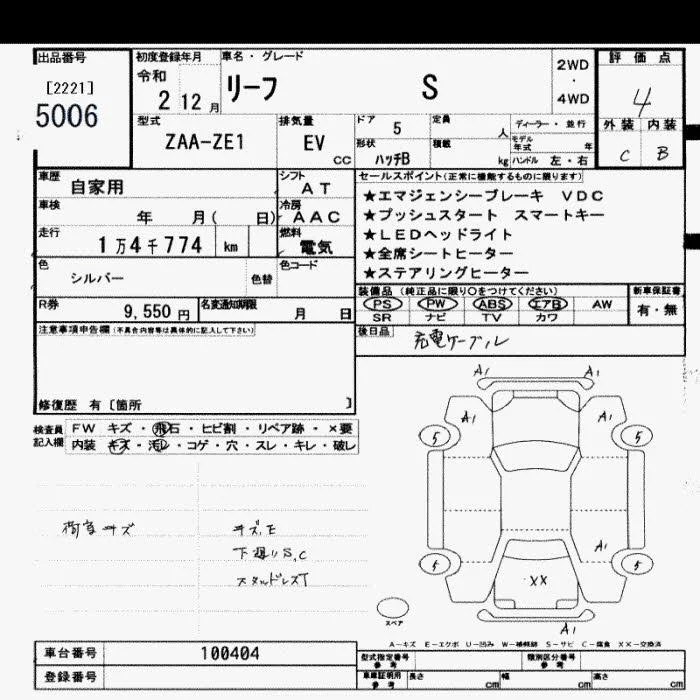 出品番号
[2221]
5006
初度登録年月
令和
2 12 月
車名・グレード
リーフ S
2WD
・
4WD
評価点
4
外装 内装
C B
型式
ZAA-ZE1
排気量
EV
CC
ドア
5
定員
人
ディーラー・並行
形状
ハッチB
積載
kg
モデル年式 年
ハンドル 左・右
車歴
自家用
シフト
AT
車検
年 月( 日)
冷房
AAC
走行
1万4千774 km
燃料
電気
色
シルバー
色替
色コード
セールスポイント(正常に機能するものに限ります)
★エマジェンシーブレーキ VDC
★プッシュスタート スマートキー
★LEDヘッドライト
★全席シートヒーター
★ステアリングヒーター
R券
9,550 円
名変通知期限
月 日
装備品 (純正品に限り○をつけてください)
PS PW ABS エアB AW
SR ナビ TV カワ
新車保証書
有・無
注意事項申告欄(不具合内容等は具体的に記入して下さい)
後日品
充電ケーブル
修復歴 有 [箇所 ]
検査員記入欄
FW キズ・飛石・ヒビ割・リペア跡・×要
内装 キズ・汚レ・コゲ・穴・スレ・キレ・破レ
荷室キズ
キズ、E
下廻りS,C
A1 A1
A1 A1
5 5
A1
5 5
XX
A1
スペア
A-キズ E-エクボ U-凹み W-補修跡 S-サビ C-腐食 XX-交換済
車台番号
100404
登録番号
型式指定番号
参考
類別区分番号
参考
車庫証明用
参考
長さ cm
幅 cm
高さ cm